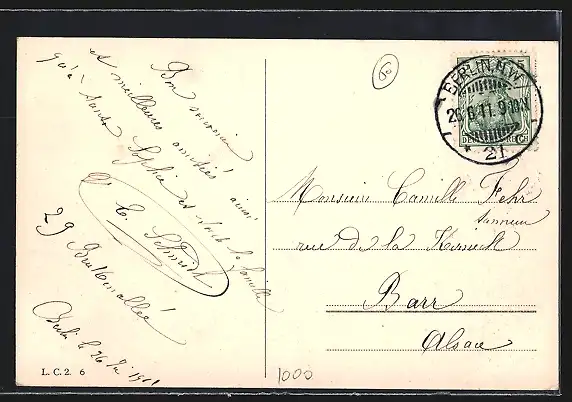 Bon souvenir
et meilleures amitiés! aussi
qu'à Tante Sophie et toute la famille
C. Schmidt
29
Berlin le 26
L. C. 2. 6
60
BERLIN N.W.
26.6.11. 9-10N.
* 21
DEUTSCHES REICH
Monsieur Camille Fehr
tanneur
rue de la Kirneck
Barr
Alsace
1000